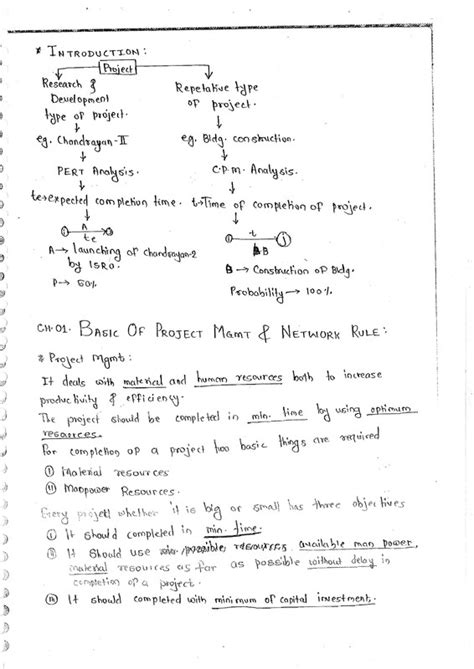 * INTRODUCTION:
Project
Research & Development type of project.
Repetative type of project.
eg. Chandrayan-II
eg. Bldg. construction.
PERT Analysis.
C.P.M. Analysis.
te→expected completion time.
t→Time of completion of project.
A
te
t
B
i
j
A→ launching of chandrayan-2 by ISRO.
B → Construction of Bldg.
P→ 50%
Probability → 100%
CH.01. BASIC OF PROJECT MGMT & NETWORK RULE:
* Project Mgmt:
It deals with material and human resources both to increase
productivity & efficiency.
The project should be completed in min. time by using optimum
resources.
For completion of a project two basic things are required
(I) Material resources
(II) Manpower Resources.
Every project whether it is big or small has three objectives
(i) It should completed in min. time.
(ii) It should use possible resources available man power,
material resources as for as possible without delay in
completion of a project.
(iii) It should completed with minimum of capital investment.